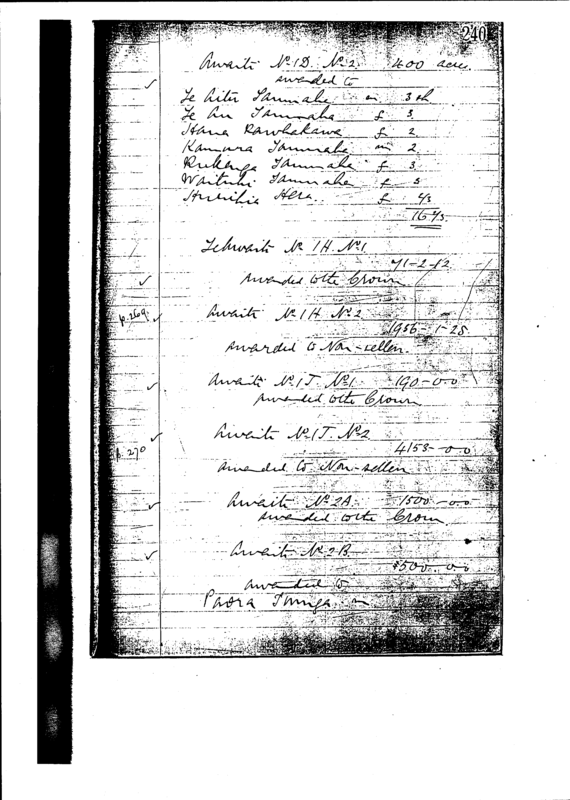 240
Awaiti No 1D. No 2. 400 acres
awarded to
Te Aitu Taumaha m 3 sh
Te Au Taumaha f 3
Hana Rawhakawa f 2
Kamura Taumaha m 2
Taumaha f 3
Taumaha f 3
Hera f
16
No 1H. No 1
71-2-12
awarded to the Crown
p. 269. Awaiti No 1H No 2
1956-1-25
awarded to Non-sellers.
Awaiti No 1J. No 1 190-0-0
awarded to the Crown
p. 270 Awaiti No 1J. No 2
4153-0-0
awarded to Non-sellers
Awaiti No 2A. 1500-0-0
awarded to the Crown
Awaiti No 2B
500-0-0
awarded to
Paora m